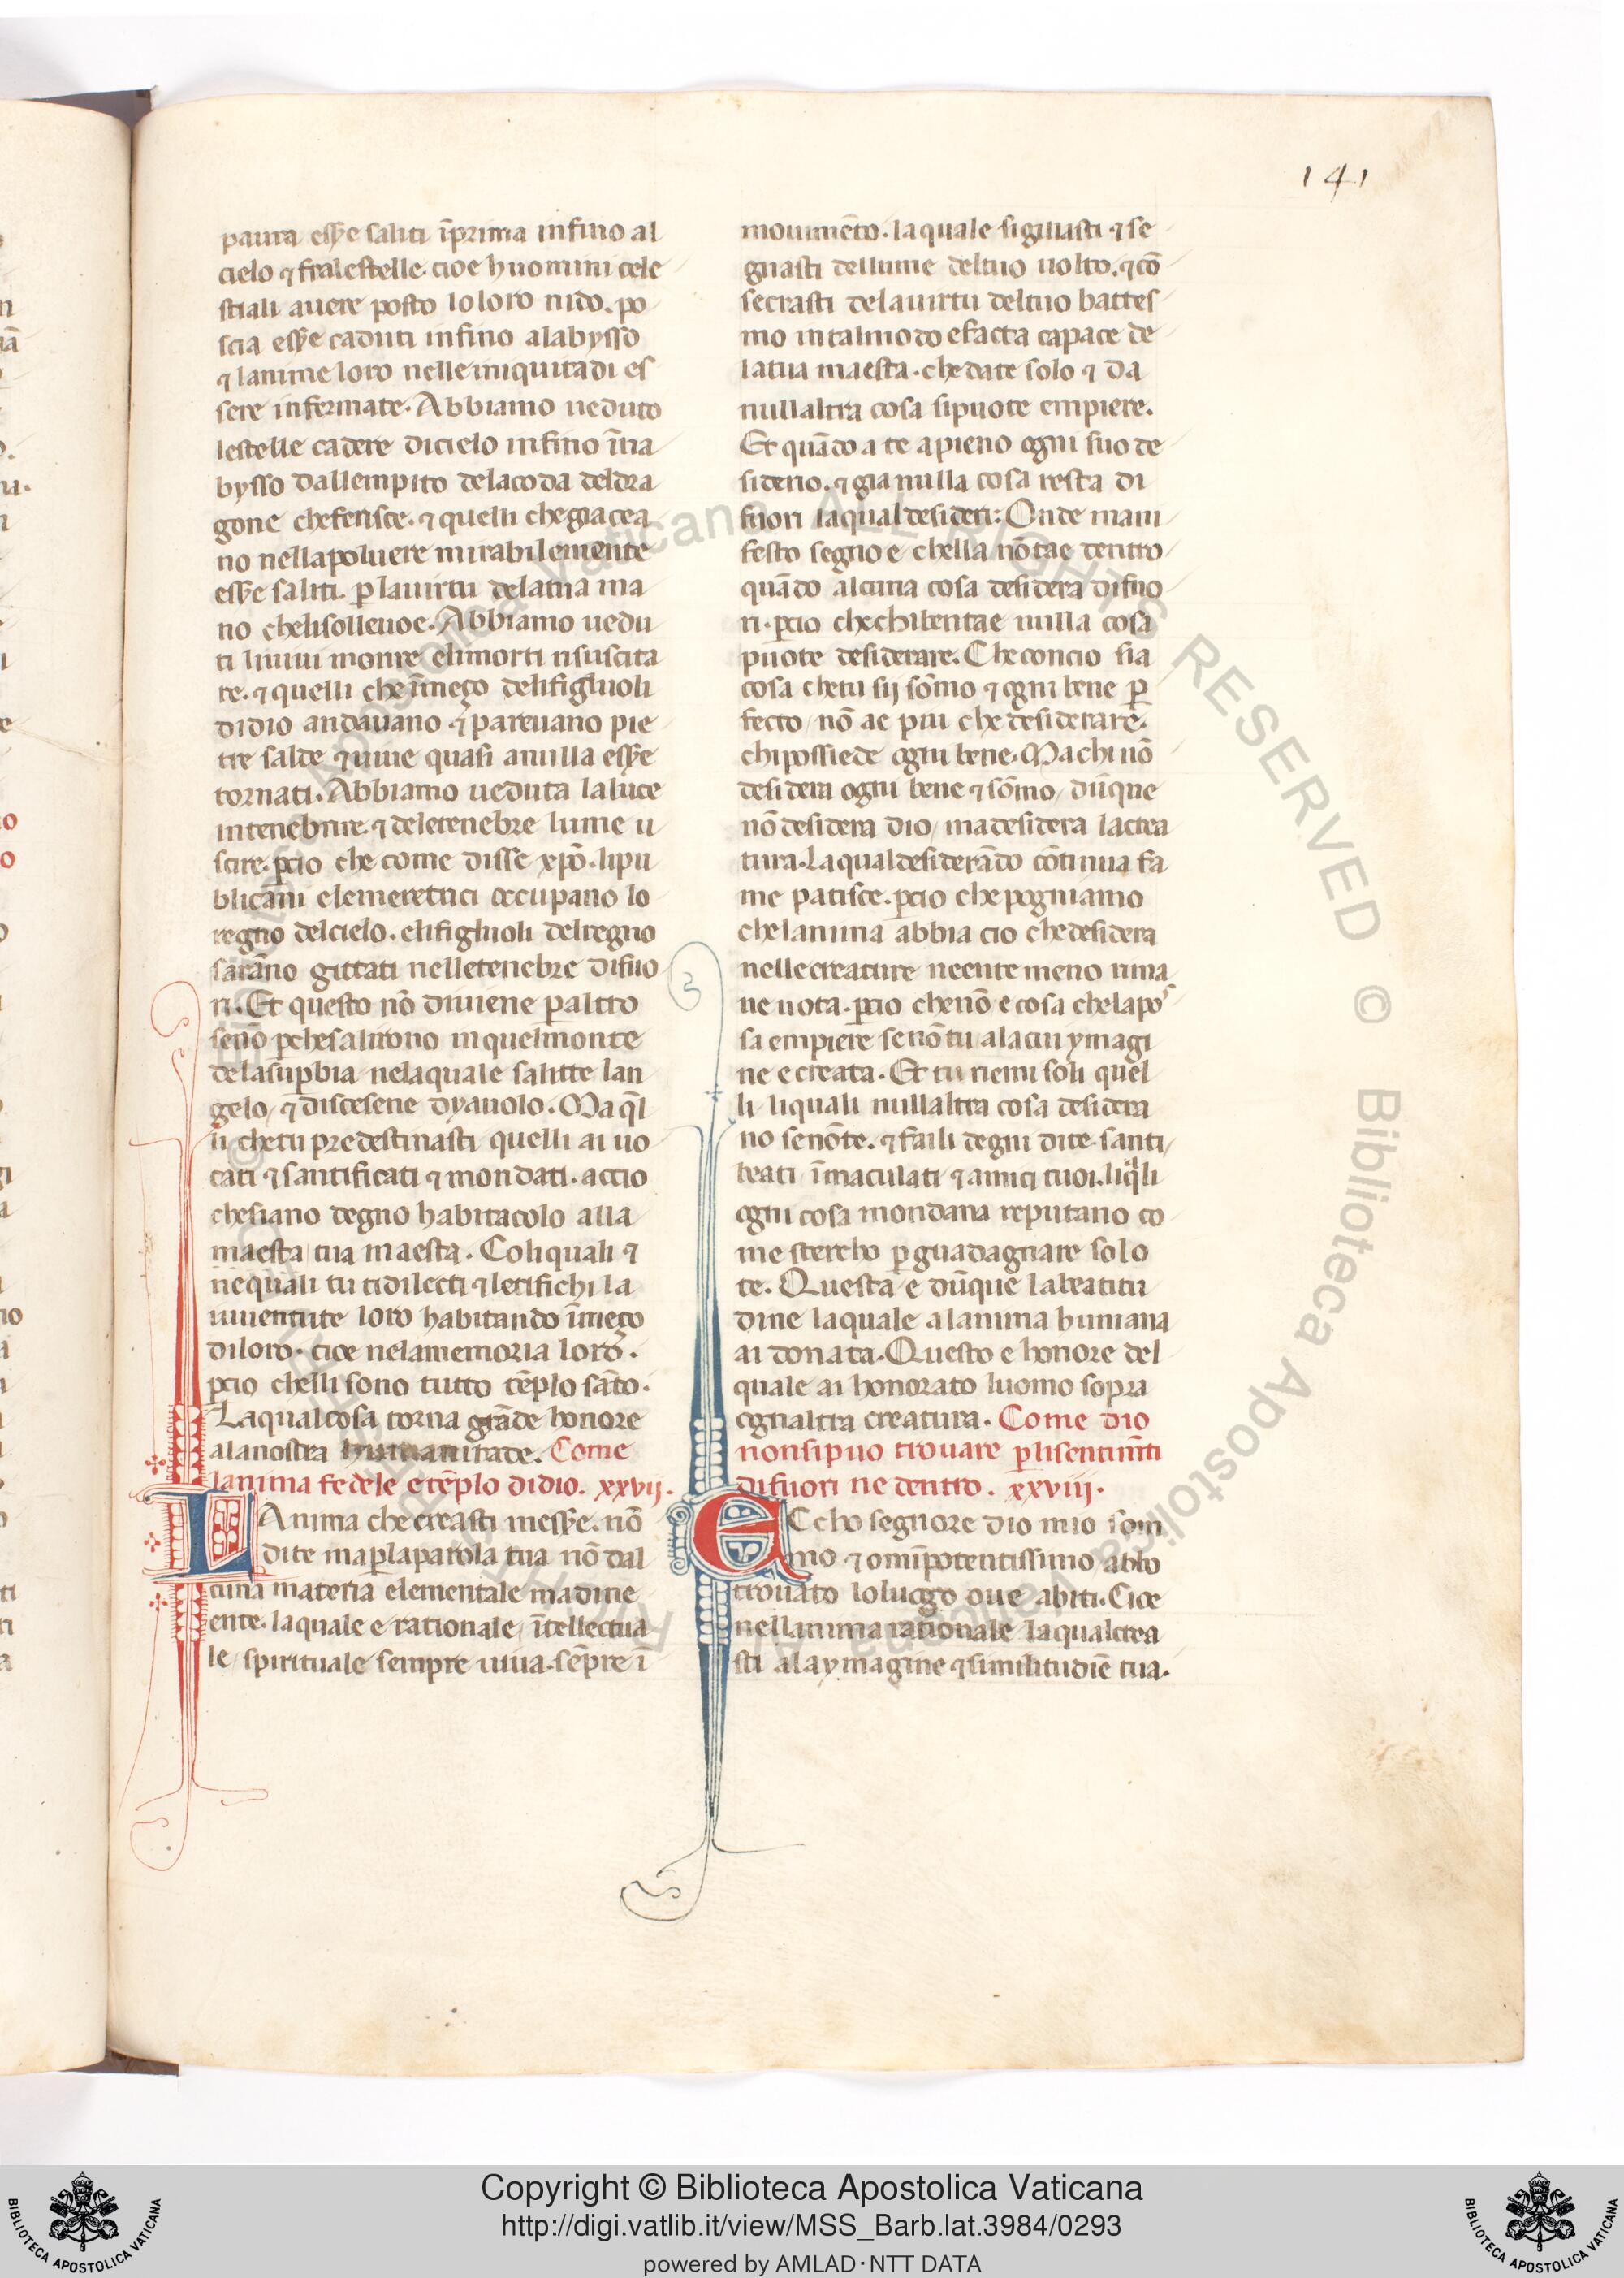 141
paura eẜẜe saliti īprima infino al
cielo ⁊ fralestelle. cioe huomini cele
stiali auere posto loloro nido. po
scia eẜẜe caduti infino alabysso
⁊ lanime loro nelleiniquitadi es
sere infermate. Abbiamo ueduto
lestelle cadere dicielo infino īna
bysso dallempito delacoda deldra
gone cheferisce. ⁊ quelli chegiacea
no nellapoluere mirabilemente
eẜẜe saliti. ꝑ lauirtu delatua ma
no chelisolleuoe. Abbiamo uedu
ti liuiui morire elimorti risuscita
re. ⁊ quelli che īmeço delifigliuoli
didio andauano. ⁊ pareuano pie
tre salde ⁊ uiue quasi anulla eẜẜe
tornati. Abbiamo ueduta laluce
intenebrire. ⁊ deletenebre lume u
scire. ꝑcio che come disse xp̄o. lipu
blicani elemeretrici occupano lo
regno delcielo. elifigliuoli delregno
sarāno gittati nelletenebre difuo
ri. Et questo nō diuiene ꝑaltro
senō ꝑchesalirono inquelmonte
delasuꝑbia nelaquale salitte lan
gelo, ⁊ discesene dyauolo. Ma q̄l
li chetu predestinasti quelli ai uo
cati ⁊ santificati ⁊ mondati. accio
chesiano degno habitacolo alla
maesta tua maesta. Coliquali ⁊
nequali tu tidilecti ⁊ letifichi la
iuuentute loro habitando īmeço
diloro. cioe nelamemoria loro.
ꝑcio chelli sono tutto tēplo sāto.
Laqualcosa torna grāde honore
alanostra humanitade. Come
lanima fedele e tēplo didio. xxvij.
LAnima che creasti messẽ. nō
dite maꝑlaparola tua nō dal
cuna materia elementale madine
ente. laquale e rationale, ītellectua
le, spirituale sempre uiua. sēpre ī
mouimēto. laquale sigillasti ⁊ se
gnasti dellume deltuo uolto. ⁊ cō
secrasti delauirtu deltuo battes
mo intalmodo e facta capace de
latua maesta. chedate solo ⁊ da
nullaltra cosa sipuote empiere.
Et quādo a te apieno ogni suo de
siderio. ⁊ gia nulla cosa resta di
fuori laqual desideri: Onde mani
festo segno e chella nō tae dentro
quādo alcuna cosa desidera difuo
ri. ꝑcio chechibentae nulla cosa
puote desiderare. Che concio sia
cosa chetu sij sōmo ⁊ ogni bene ꝑ
fecto, nō ae piu che desiderare.
chi possiede ogni bene. Ma chi nō
desidera ogni bene ⁊ sōmo, dūque
nō desidera dio, ma desidera lacrea
tura. Laqual desiderādo cōtinua fa
me patisce. ꝑcio che pogniamo
chelanima abbia cio chedesidera
nellecreature neentemeno rima
ne uota. ꝑcio chenō e cosa chelapos
sa empiere se nō tu alacui ymagi
ne e creata. Et tu riemi soli quel
li, liquali nullaltra cosa desidera
no se nō te. ⁊ faili degni dite. santi,
beati īmaculati ⁊ amici tuoi. liq̄li
ogni cosa mondana reputano co
me stercho ꝑ guadagnare solo
te. Questa e dūque labeatitu
dine laquale alanima humana
ai donata. Questo e honore del
quale ai honorato luomo sopra
ognaltra creatura. Come dio
nonsipuo trouare ꝑlisentimēti
difuori ne dentro. xxviii.
ECcho segnore dio mio som
mo ⁊ omīpotentissimo abbo
trouato loluogo oue abiti. Cioe
nellanima rationale laqualcrea
sti alaymagine ⁊ similitudiē tua.
Copyright © Biblioteca Apostolica Vaticana
http://digi.vatlib.it/view/MSS_Barb.lat.3984/0293
powered by AMLAD · NTT DATA